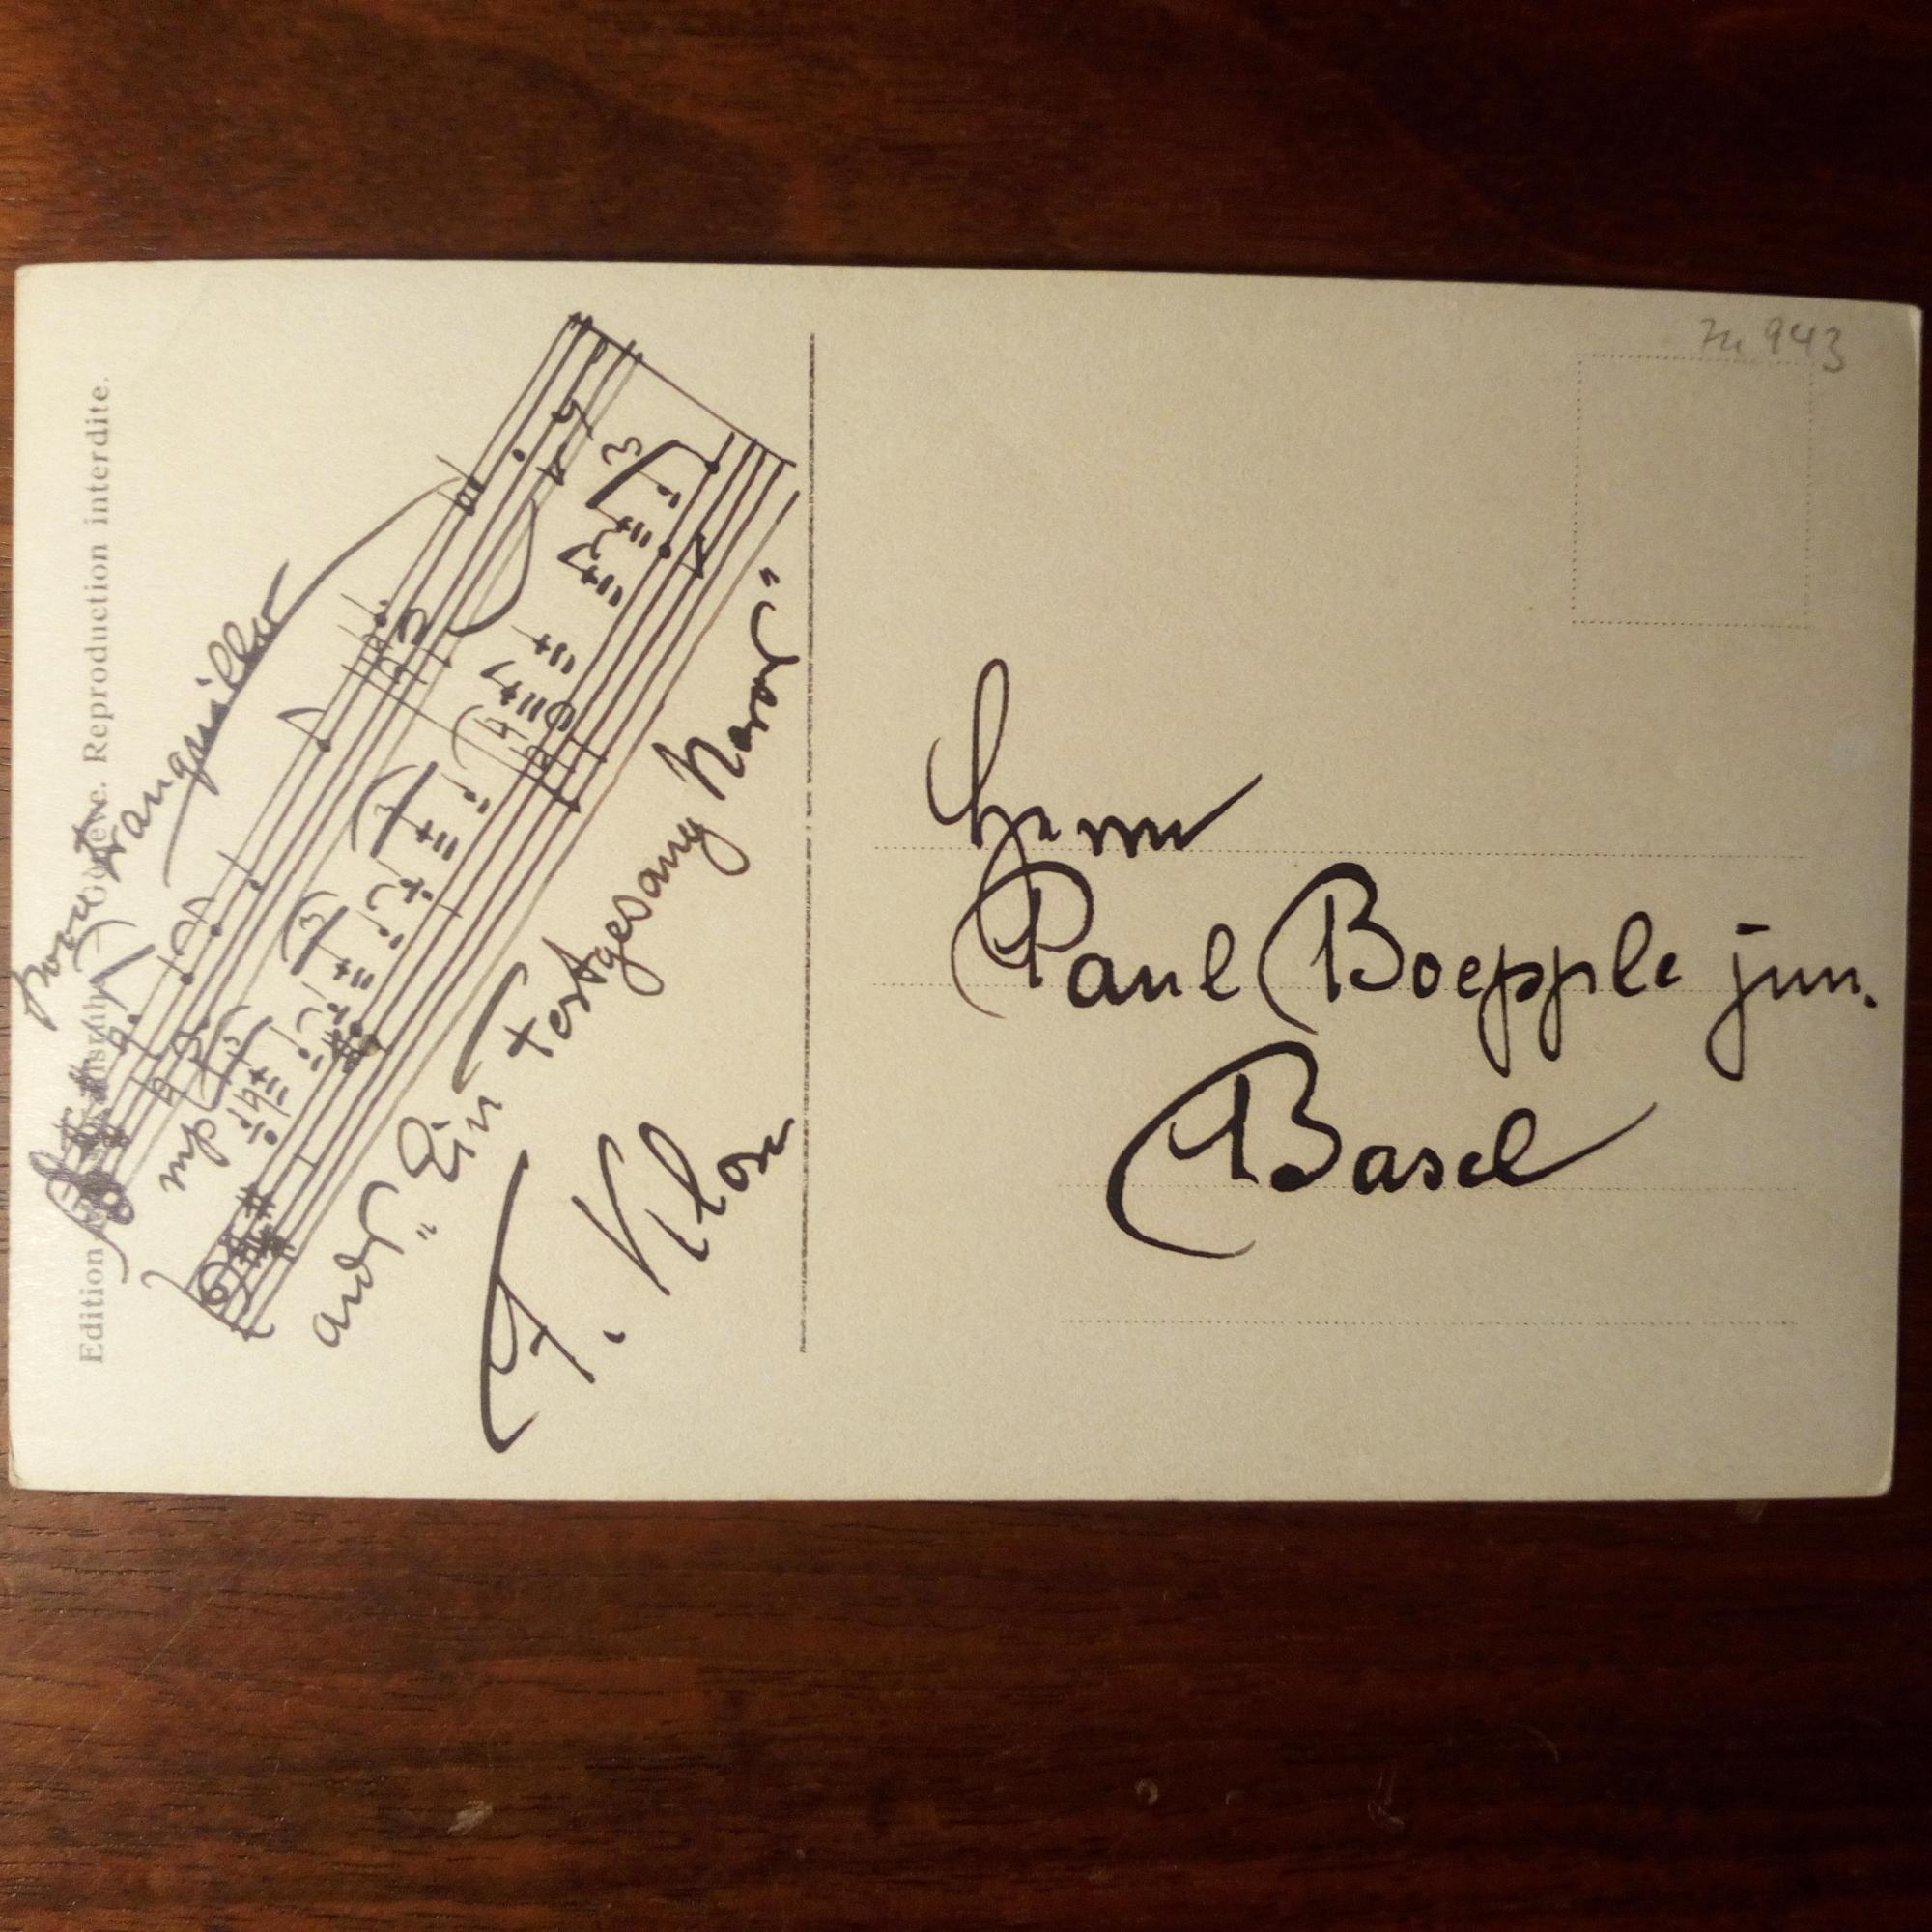 Edition Genève. Reproduction interdite.
poco tranquillo
mp
aus „Ein Festgesang Neros"
F. Klose
zu 943
Herrn
Paul Boepple jun.
Basel